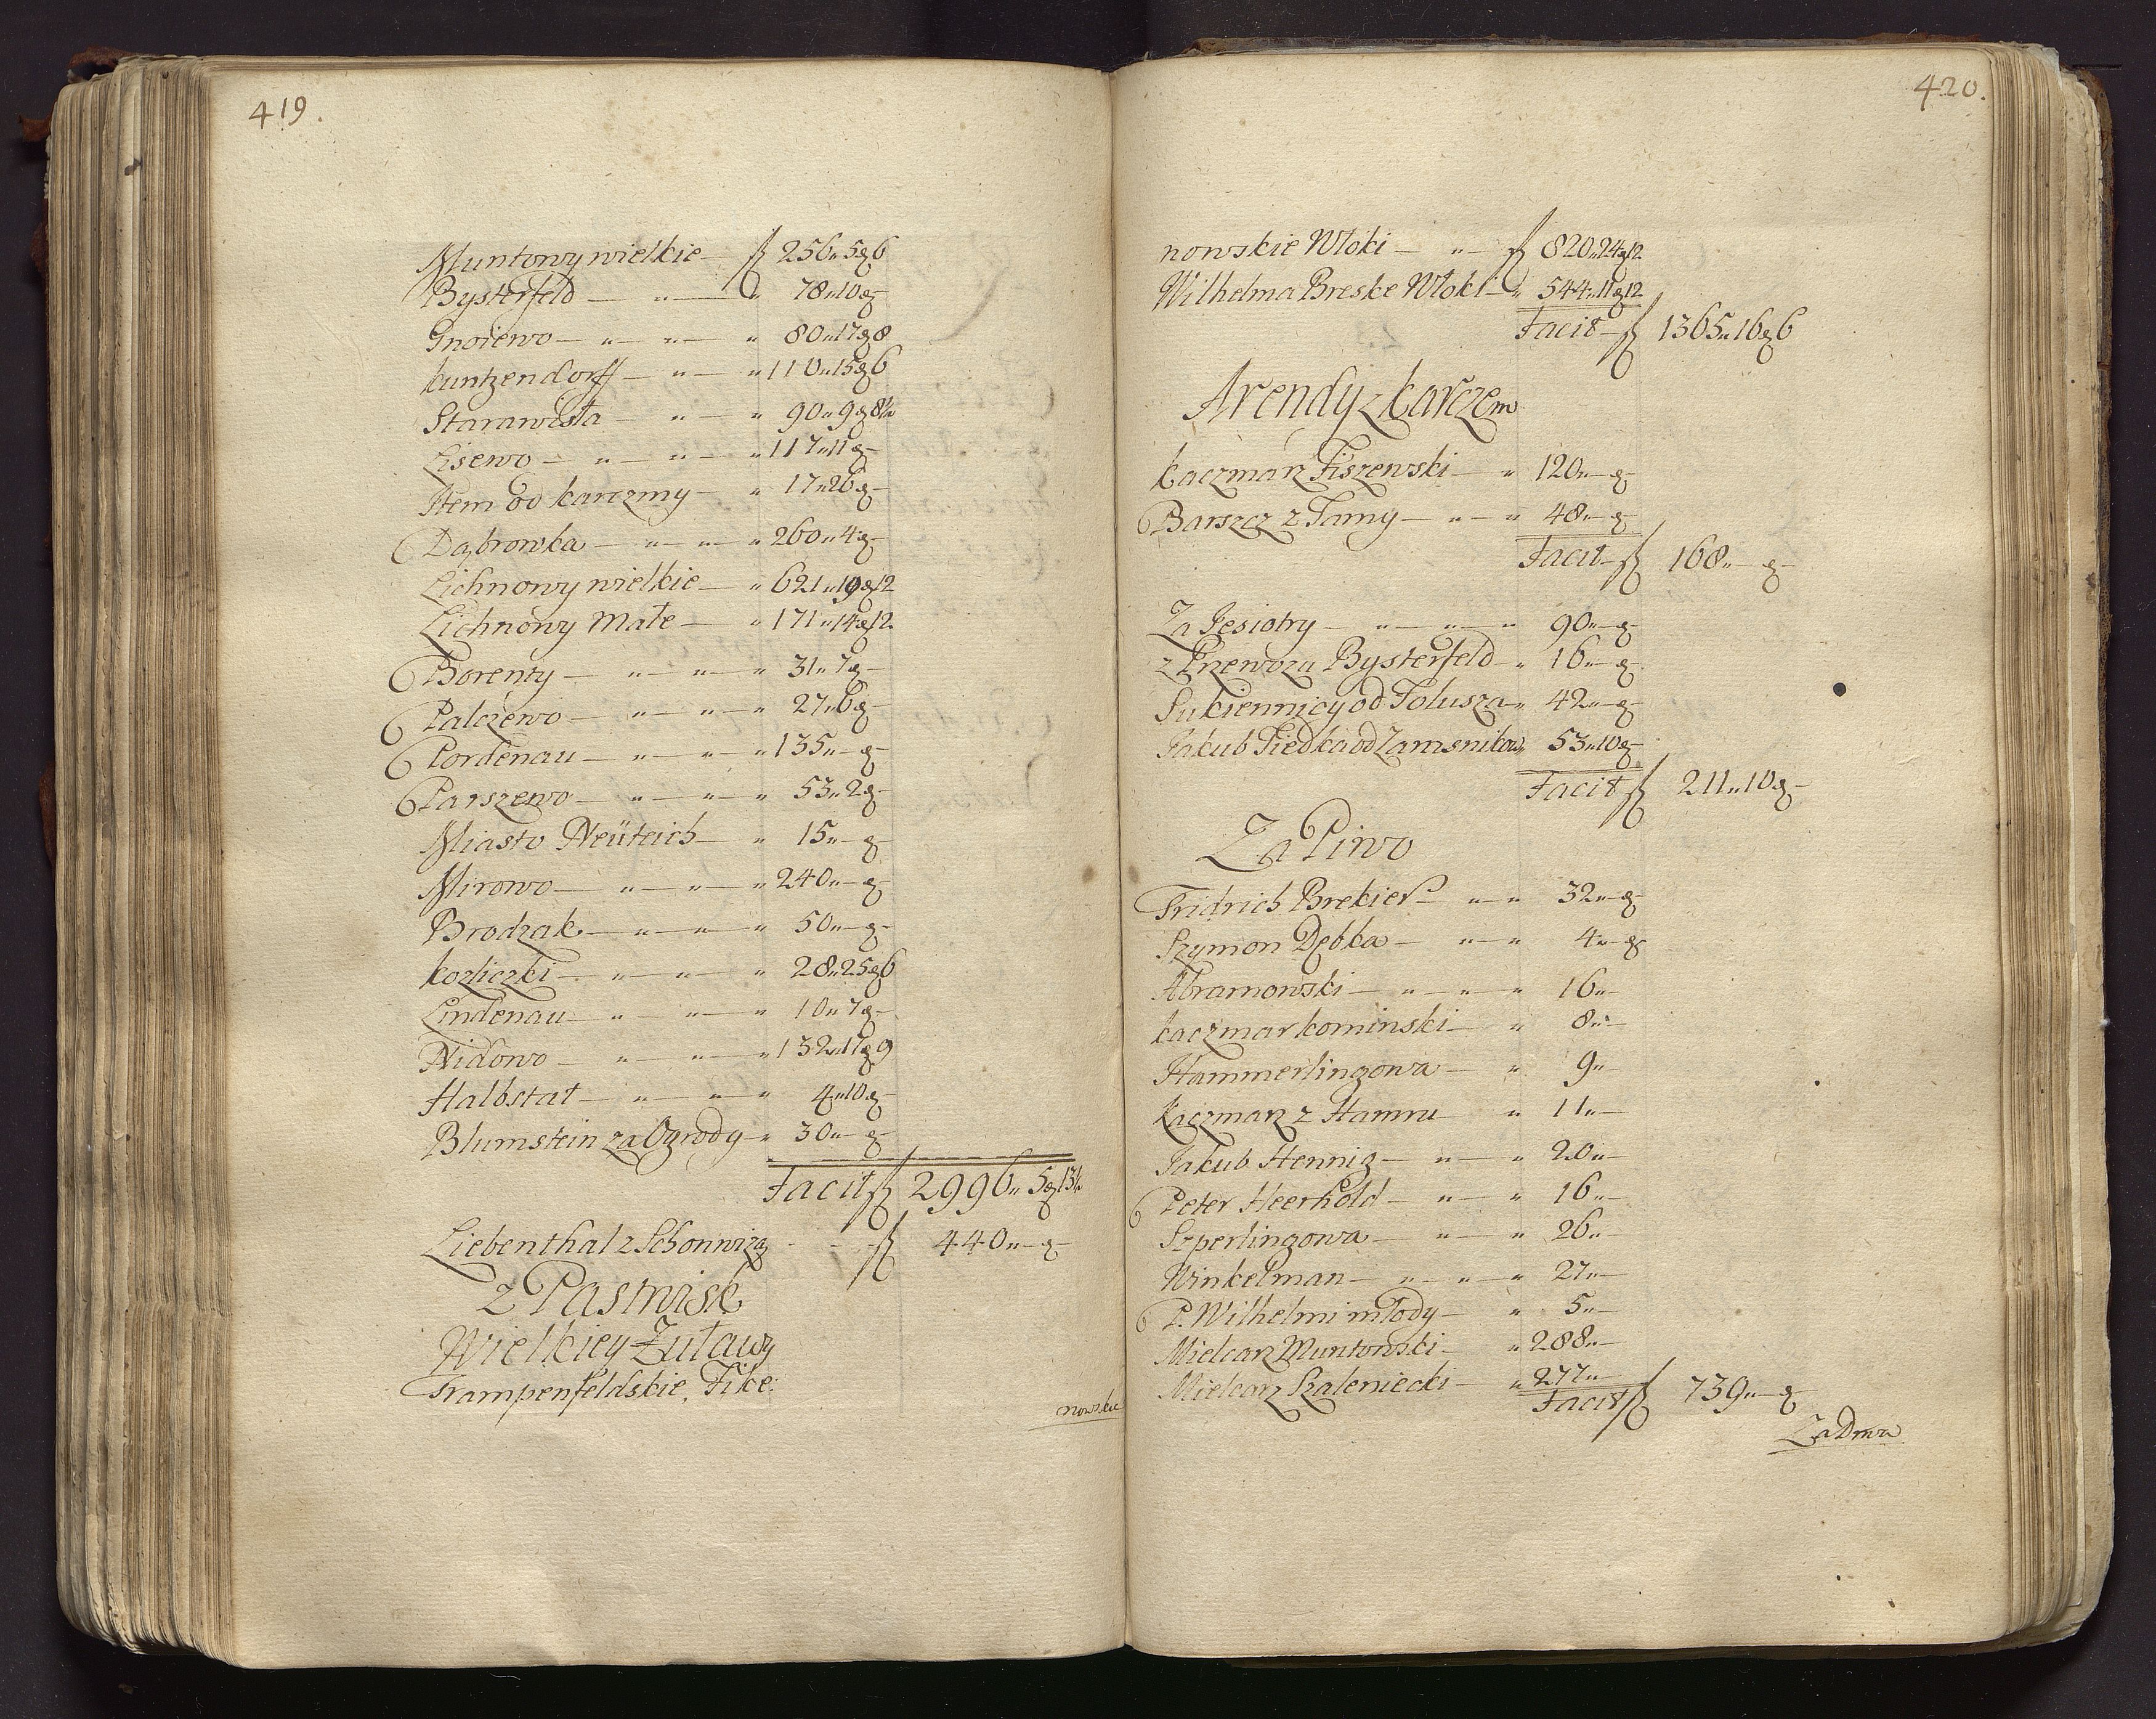 419.
Muntowy wielkie — fl 256 „ 5 g 6
Bysterfeld — „ — „ 78 „ 10 g —
Gnoiewo — „ — „ — „ 80 „ 17 g 8
Kuntzendorff — „ — „ 110 „ 15 g 6
Starawisła „ — „ 90 „ 9 g 8½
Lisewo — „ — „ — „ 117 „ 11 g —
Item od karczmy — „ 17 „ 26 g —
Dąbrowka — „ — „ — „ 260 „ 4 g —
Lichnowy wielkie — „ 621 „ 19 g 12
Lichnowy Małe — „ 171 „ 14 g 12
Borenty — „ — „ — „ 31 „ 7 g —
Palczewo — „ — „ — „ 27 „ 6 g —
Pordenau — „ — „ — „ 135 „ — g —
Parszewo — „ — „ — „ 53 „ 2 g —
Miasto Neüteich — „ 15 „ — g —
Mirowo — „ — „ — „ 240 „ — g —
Brodzak — „ — „ — „ 50 „ — g —
Kozliczki — „ — „ — „ 28 „ 25 g 6
Lindenau — „ — „ — „ 10 „ 7 g —
Nidowo — „ — „ — „ 132 „ 17 g 9
Halbstat — „ — „ — „ 4 „ 10 g —
Blumstein za Ogrody — „ 30 „ — g —
Facit fl 2996 „ 5 g 13½
Liebenthal z Schonwizą - - - fl 440 „ — g —
z Pastwisk
Wielkiey Żuławy
Trampenfeldskie, Fike:
nowskie
420.
nowskie Włoki — „ — fl 820 „ 24 g 12
Wilhelma Breske Włoki — „ 544 „ 11 g 12
Facit — fl 1365 „ 16 g 6
Arendy z karczem
Kaczmarz Fiszewski — „ 120 „ — g —
Barszcz z Tamy — „ — „ 48 „ — g —
Facit — fl 168 „ — g —
Za Jesiotry — „ — „ — „ 90 „ — g —
z Przewozu Bysterfeld — „ 16 „ — g —
Sukiennicy od Folusza — „ 42 „ — g —
Jakub Tiedka od Zamsnikow „ 53 „ 10 g —
Facit fl 211 „ 10 g —
Za Piwo
Fridrich Brekier — „ — „ 32 „ — g —
Szymon Dębka — „ — „ 4 „ — g
Abramowski — „ — „ — „ 16 „ —
Kaczmar kominski — „ 8 „ —
Hammerlingowa — „ 9 „ —
Kaczmarz z Hamru „ 11 „ —
Jakub Hennig — „ — „ 20 „ —
Peter Heerhold — „ — „ 16 „ —
Szperlingowa — „ — „ 26 „ —
Winkelman — „ — „ — „ 27 „ —
P. Wilhelmi młody — „ 5 „ —
Mielcarz Muntowski — „ 288 „ —
Mielcarz Szaleniecki — „ 277 „ —
Facit fl 739 „ — g —
Za Drwa